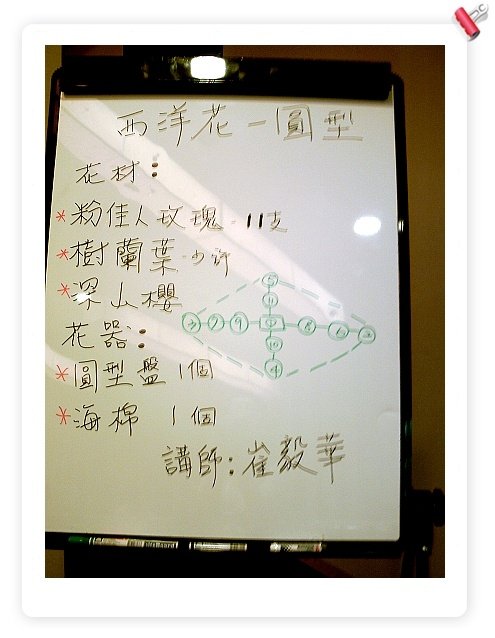 西洋花－圓型
花材：
*粉佳人玫瑰-11支
*樹蘭葉-少許
*深山櫻
花器：
*圓型盤 1個
*海棉 1個
講師：崔毅華
5
3 7 9 8 6 2
10
4